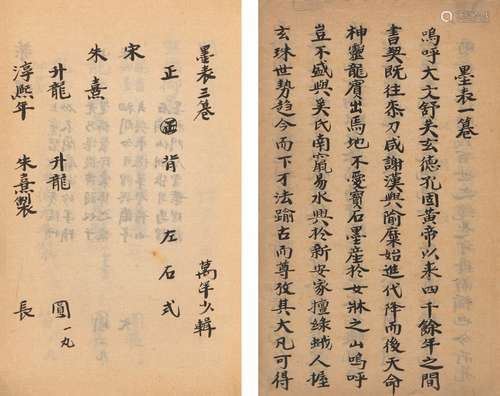 墨表一卷
嗚呼大文舒矣玄德孔固黃帝以來四千餘年之間
書契既往柰刀咸謝漢興隃糜始進代降而後天命
神靈龍賓出焉地不愛寶石墨產於女牀之山嗚呼
豈不盛與吳氏南竄易水興於新安家擅綠螘人握
玄珠世勢趍今而下才法踰古而尊攷其大凡可得
墨表三卷 萬年少輯
正 面 背 左 右 式
宋
朱熹
升龍 升龍 圓 一丸
淳熙年 朱熹製 長